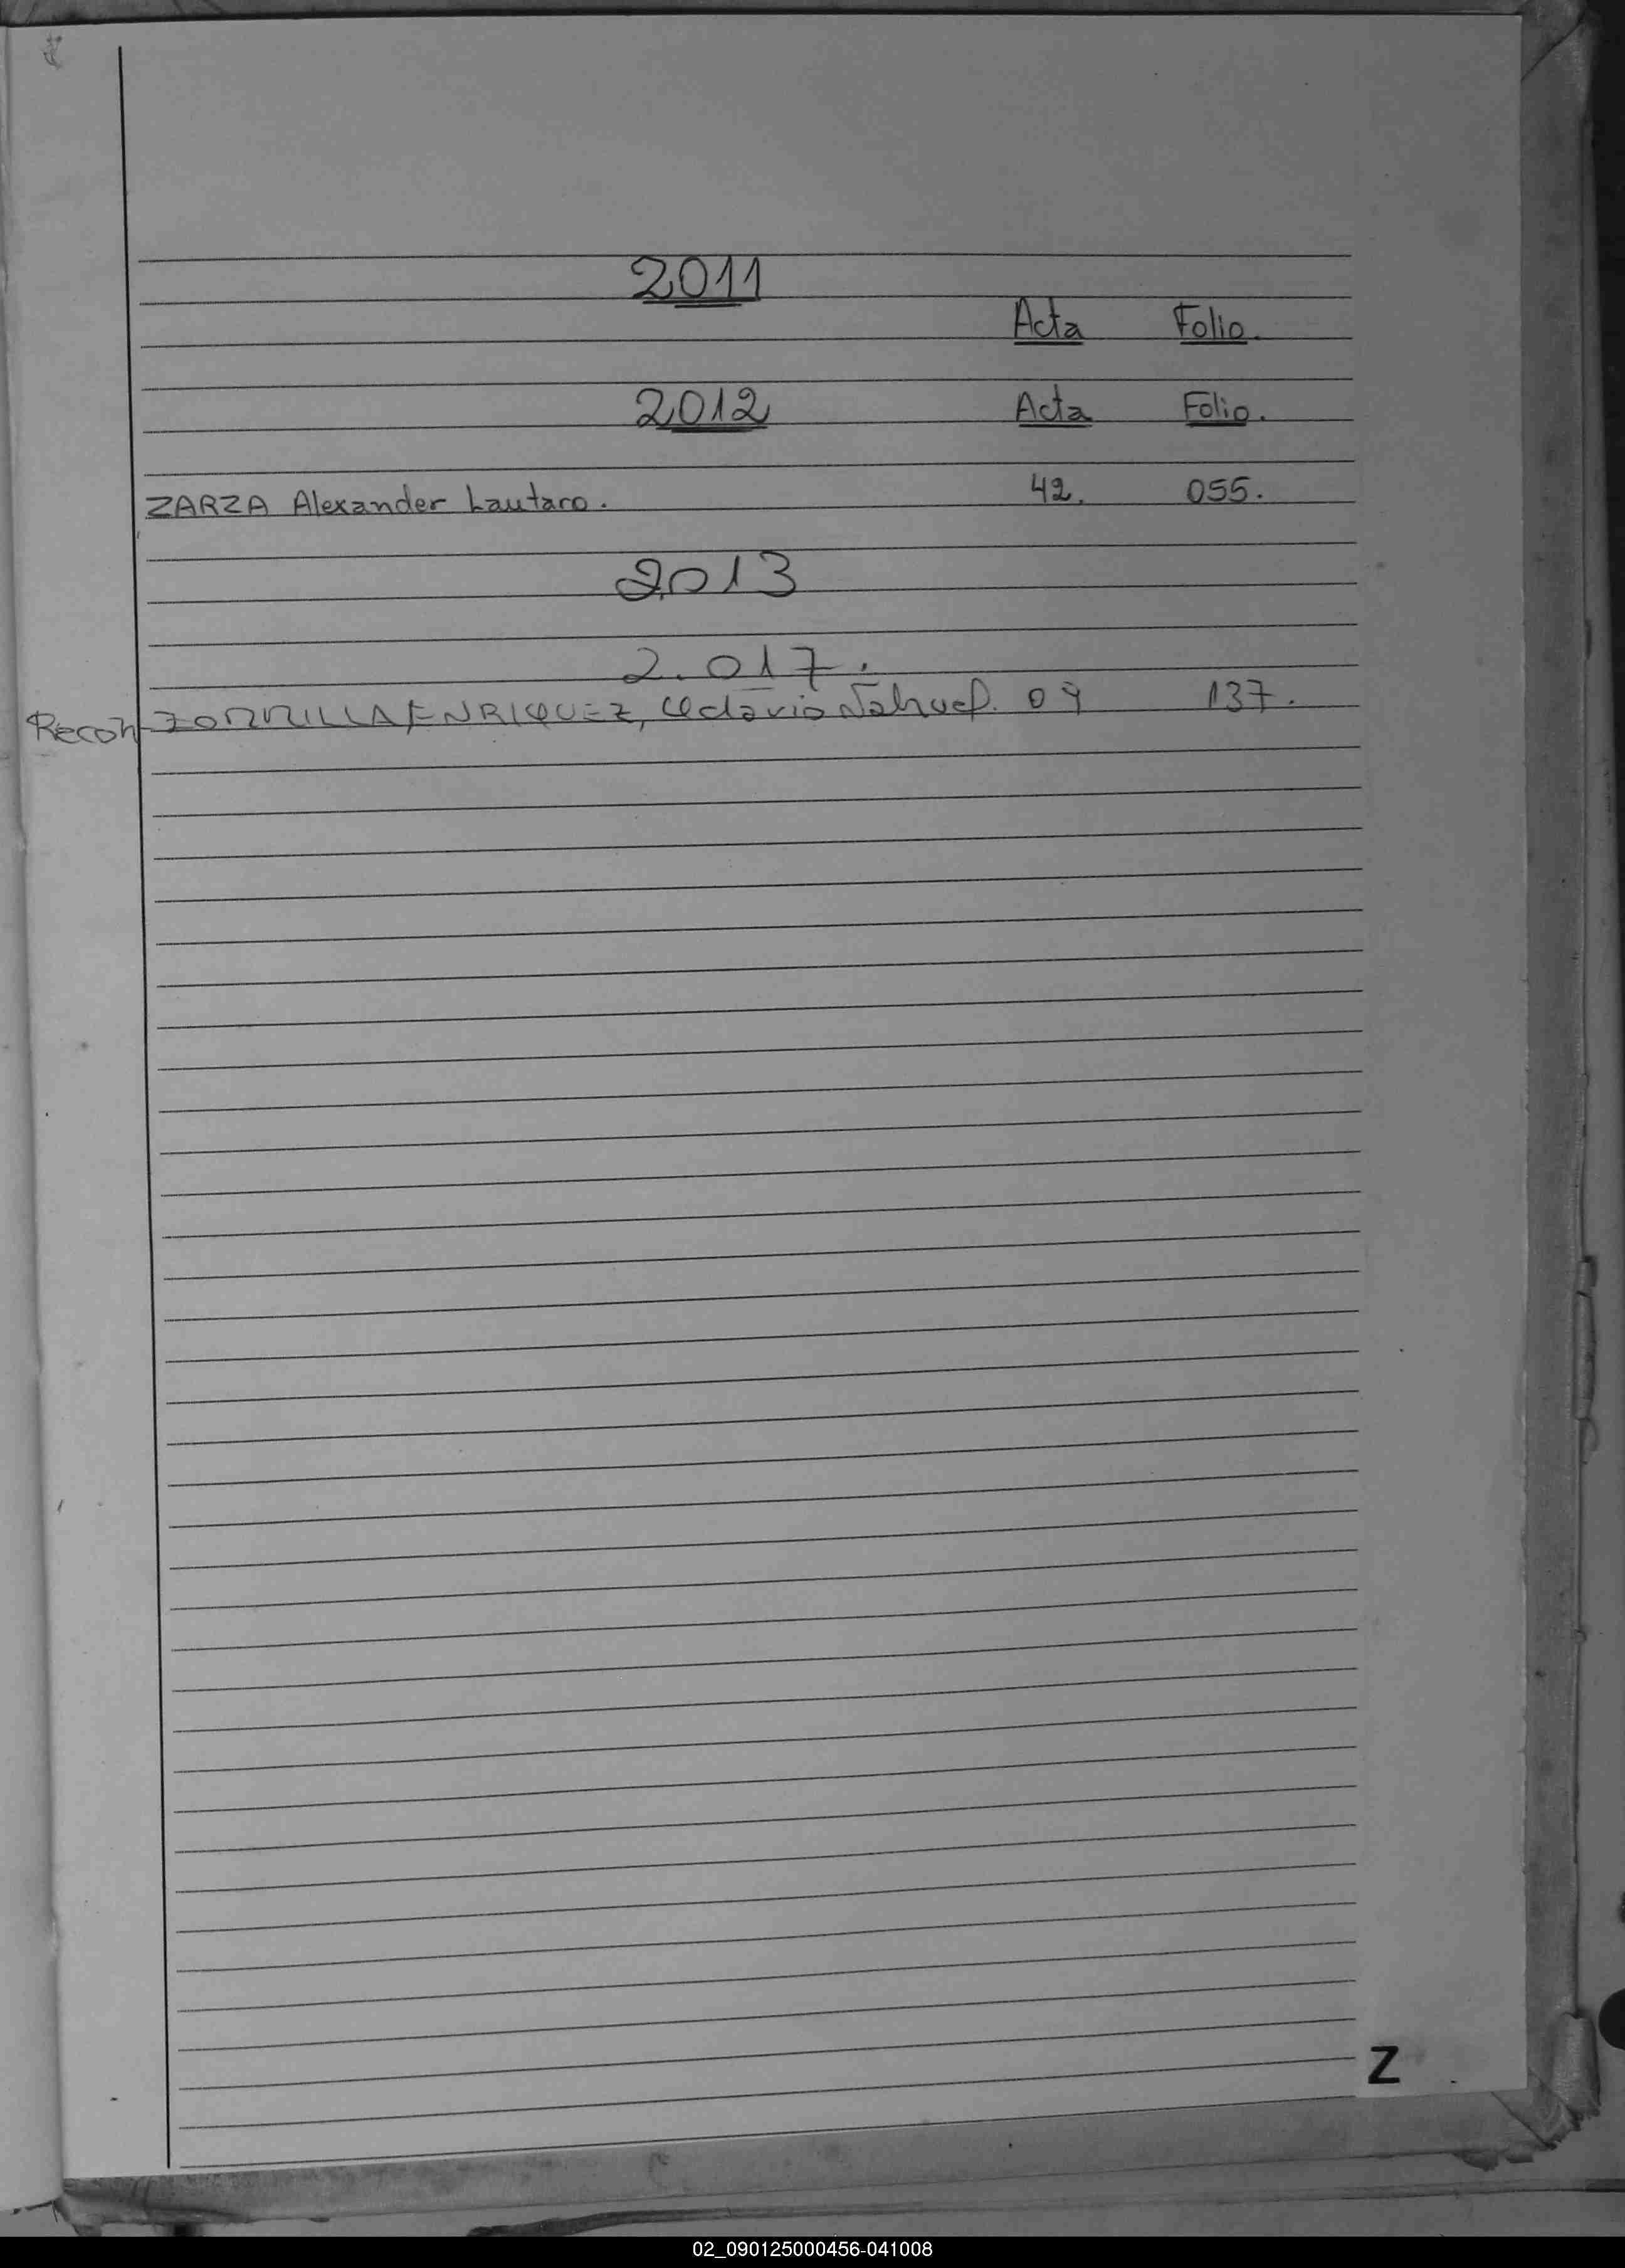 2011
Acta Folio.
2012 Acta Folio.
ZARZA Alexander Lautaro. 42. 055.
2013
2.017.
Recon ZORRILLA ENRIQUEZ, Octavio Nahuel. 09 137.
Z
02_090125000456-041008